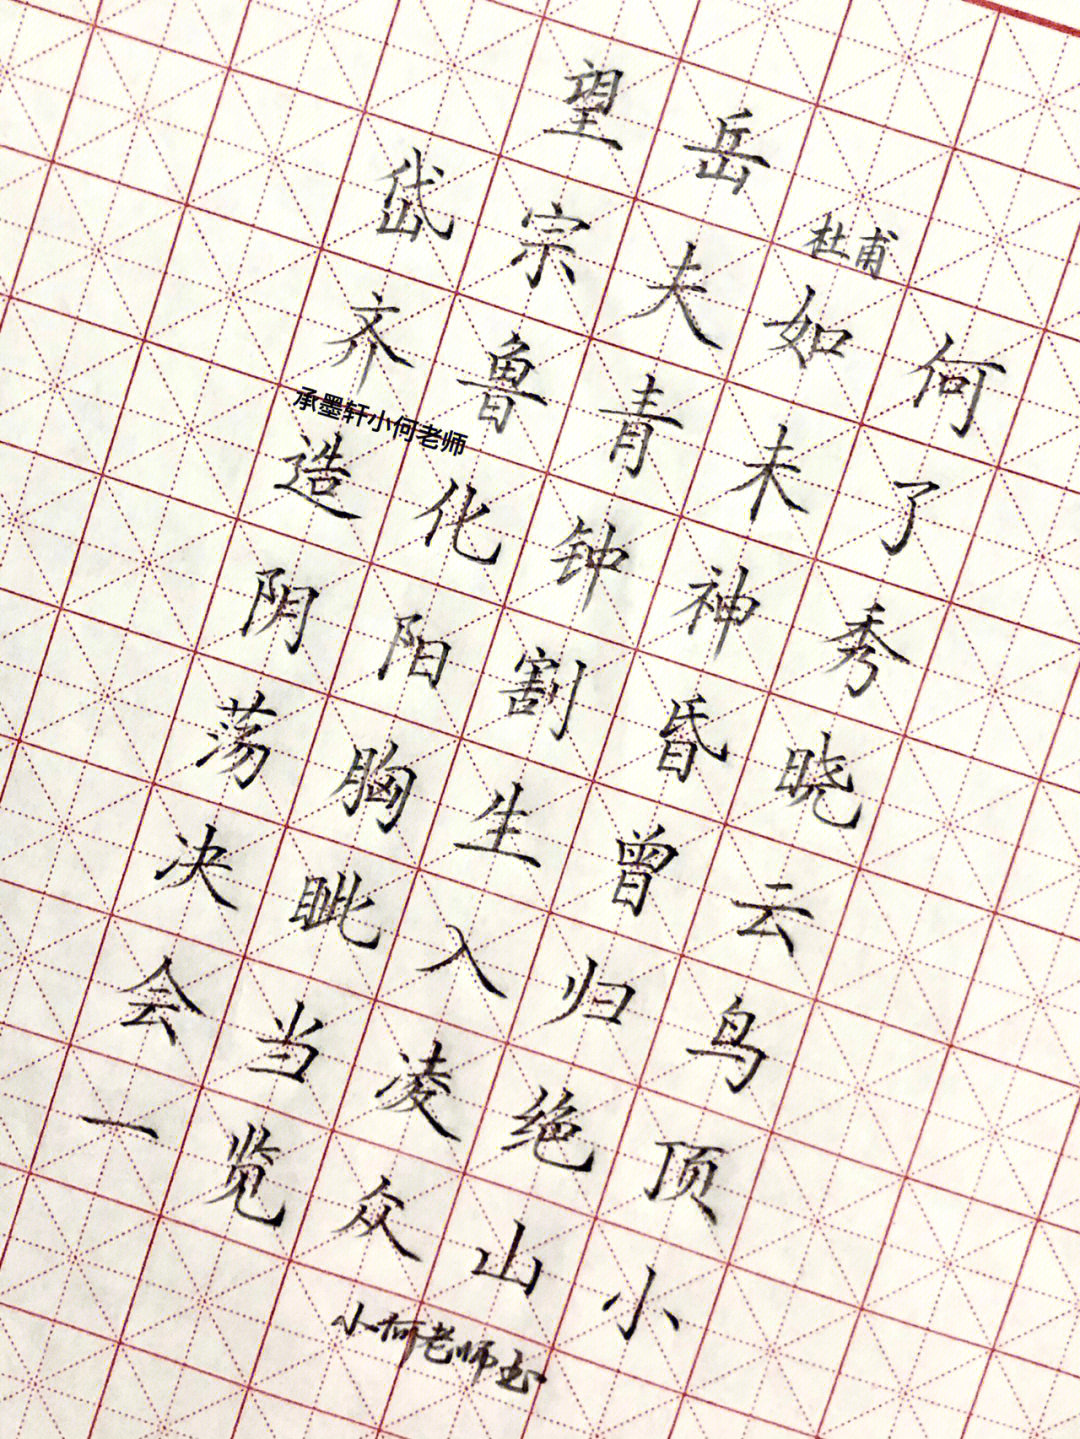 望岳
杜甫
岱宗夫如何
齐鲁青未了
承墨轩小何老师
造化钟神秀
阴阳割昏晓
荡胸生曾云
决眦入归鸟
会当凌绝顶
一览众山小
小何老师书